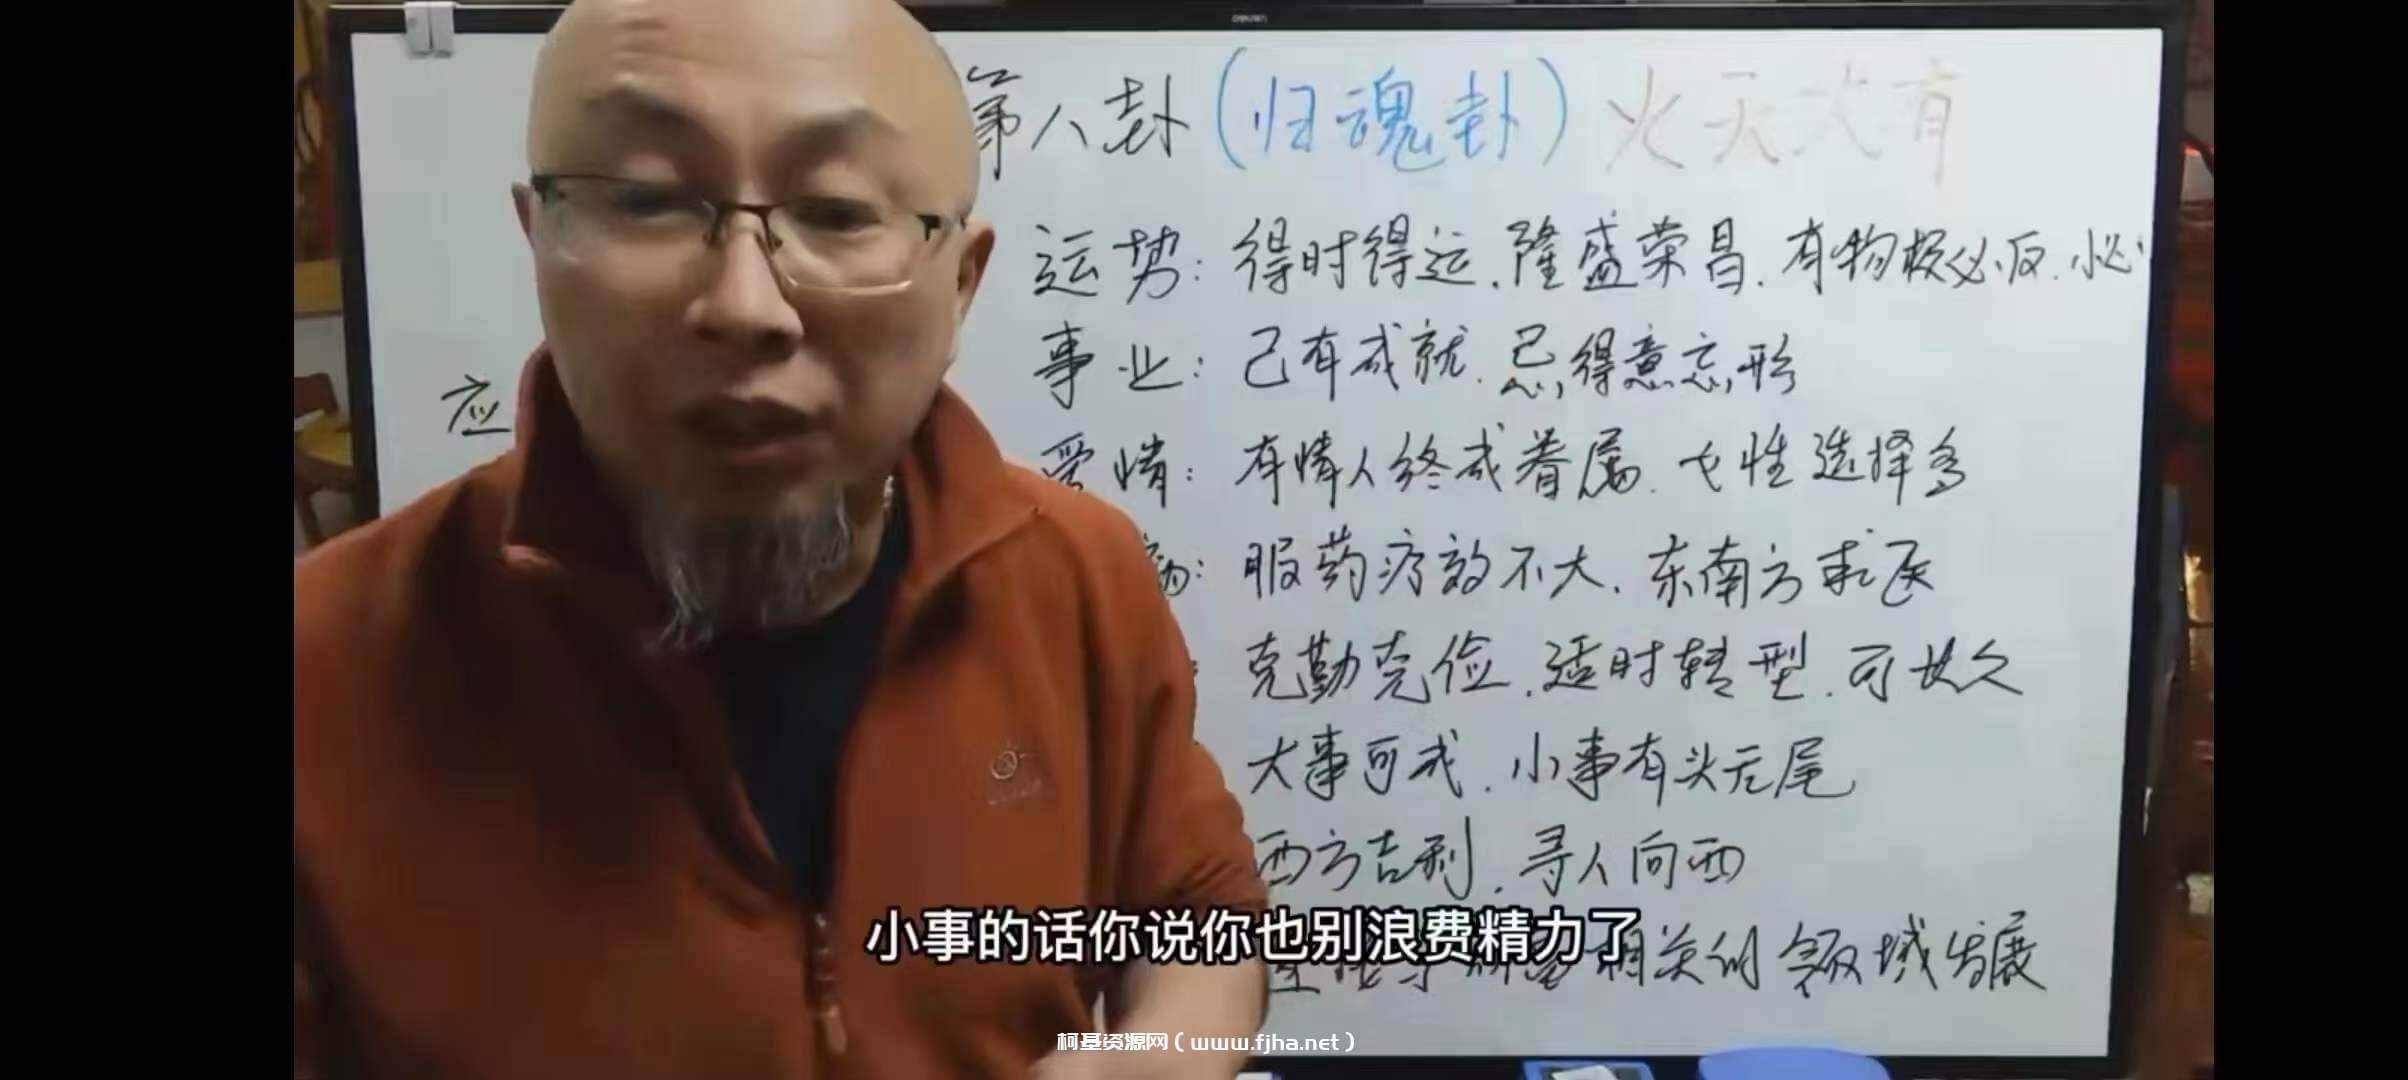 deli
第八卦(归魂卦) 火天大有
运势:得时得运.隆盛荣昌.有物极必反.小心
事业:己有成就.忌得意忘形
应
爱情:有情人终成眷属.女性选择多
病:服药疗效不大.东南方求医
克勤克俭.适时转型.可长久
大事可成.小事有头无尾
西方吉利.寻人向西
小事的话你说你也别浪费精力了
相关的领域发展
柯基资源网(www.fjha.net)